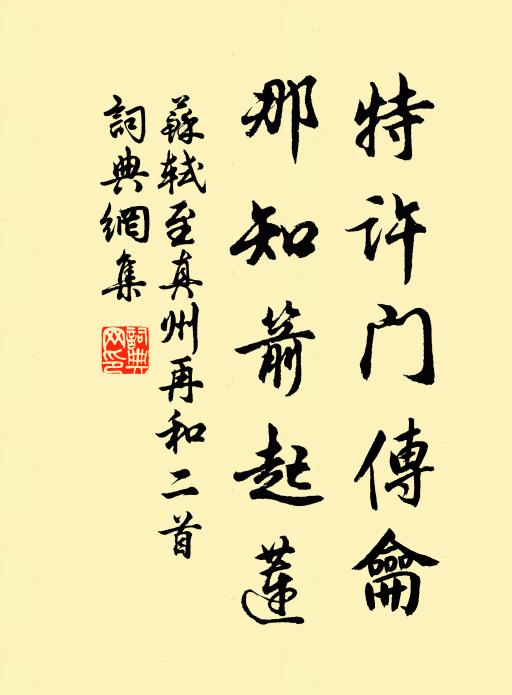 特許門傳龠
那知箭起蓮
蘇軾至真州再和二首
詞典網集
詞典
網印